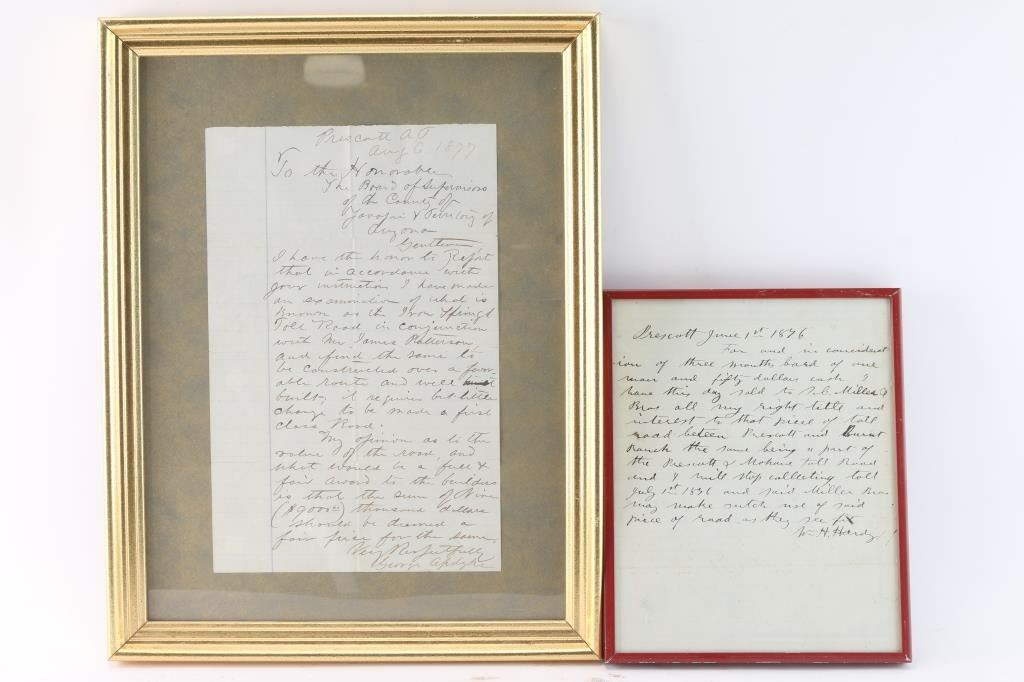 Prescott A T
Aug 6 1877
To the Honorable
The Board of Supervisors
of the County of
Yavapai & Territory of
Arizona
Gentlemen
I have the honor to Report
that in accordance with
your instruction I have made
an examination of what is
Known as the Iron Springs
Toll Road in conjunction
with Mr. James Patterson
and find the same to
be constructed over a favor
able route and well
built, it requires but little
change to be made a first
class Road.
My opinion as to the
value of the road, and
what would be a full &
fair award to the builders
is that the sum of Nine
($9000) thousand dollars
should be deemed a
fair price for the same,
Very Respectfully
George
Prescott June 1st 1876
For and in considerat
ion of three months bard of one
man and fifty dollars cash I
have this day sold to Miller
Bros all my right title and
interest to that piece of toll
road beteen Prescott and Burnt
Ranch the same being a part of
the Prescott & Mohave toll Road
and I will stop collecting toll
July 1st 1876 and said Miller Bros
may make sutch use of said
piece of road as they see fit
Wm H. Hardy